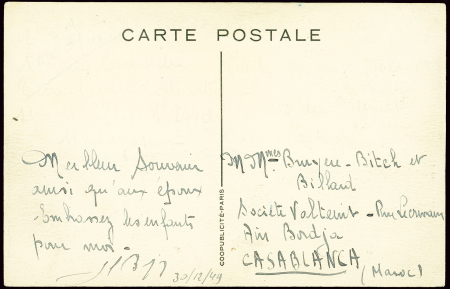 CARTE POSTALE
Meilleur Souvenir
ainsi qu'aux époux
Embrassez les enfants
pour moi -
30/12/49
COOPUBLICITÉ-PARIS
M Mmes Bruyere - Bitch et
Billand
Societé Valtenit - Rue
Aïn Bordja
CASABLANCA
(Maroc)